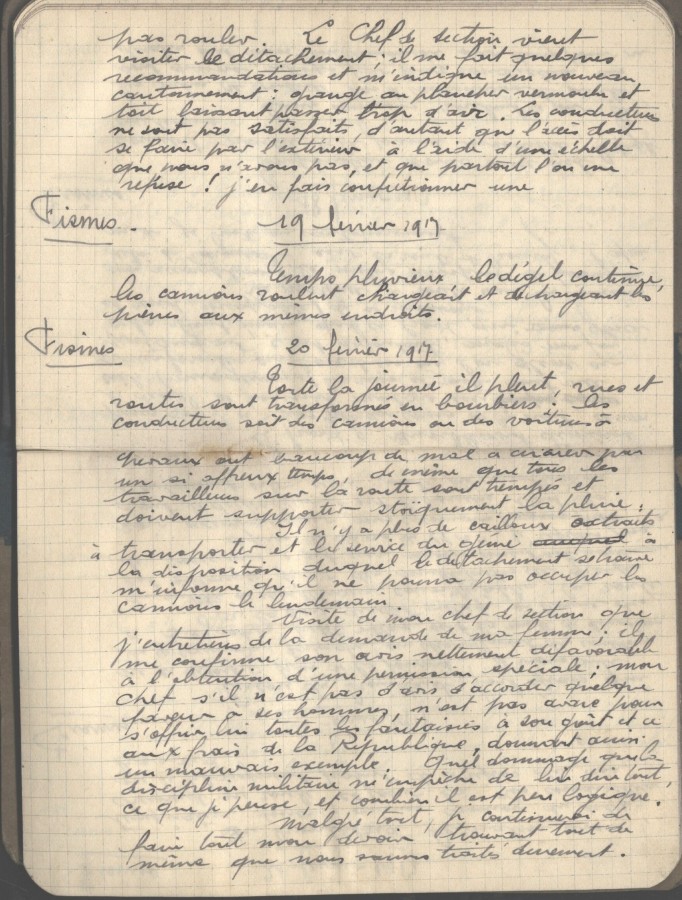 pas rouler. Le Chef de section vient
visiter le détachement ; il me fait quelques
recommandations et m'indique un nouveau
cantonnement : grange au plancher vermoulu et
toit laissant passer trop d'air. Les conducteurs
ne sont pas satisfaits, d'autant que l'accès doit
se faire par l'extérieur à l'aide d'une échelle
que nous n'avons pas, et que partout l'on me
refuse ! j'en fais confectionner une
Fismes. 19 février 1917
Temps pluvieux le dégel continue,
les camions roulent chargeant et déchargeant les
pierres aux mêmes endroits.
Fismes 20 février 1917
Toute la journée il pleut, rues et
routes sont transformés en bourbiers ; les
conducteurs soit des camions ou des voitures à
chevaux ont beaucoup de mal à circuler par
un si affreux temps, de même que tous les
travailleurs sur la route sont trempés et
doivent supporter stoïquement la pluie ;
Il n'y a plus de cailloux extraits
à transporter et le service du Génie auquel à
la disposition duquel le détachement se trouve
m'informe qu'il ne pourra pas occuper les
camions le lendemain.
Visite de mon chef de section que
j'entretiens de la demande de ma femme ; il
me confirme son avis nettement défavorable
à l'obtention d'une permission spéciale ; mon
chef s'il n'est pas d'avis d'accorder quelque
faveur à ses hommes, n'est pas avare pour
s'offrir lui toutes les fantaisies à son goût et ce
aux frais de la République, donnant ainsi
un mauvais exemple. Quel dommage que la
discipline militaire m'empêche de lui dire tout
ce que je pense, et combien il est peu logique.
Malgré tout, je continuerai de
faire tout mon devoir trouvant tout de
même que nous sommes traités durement.